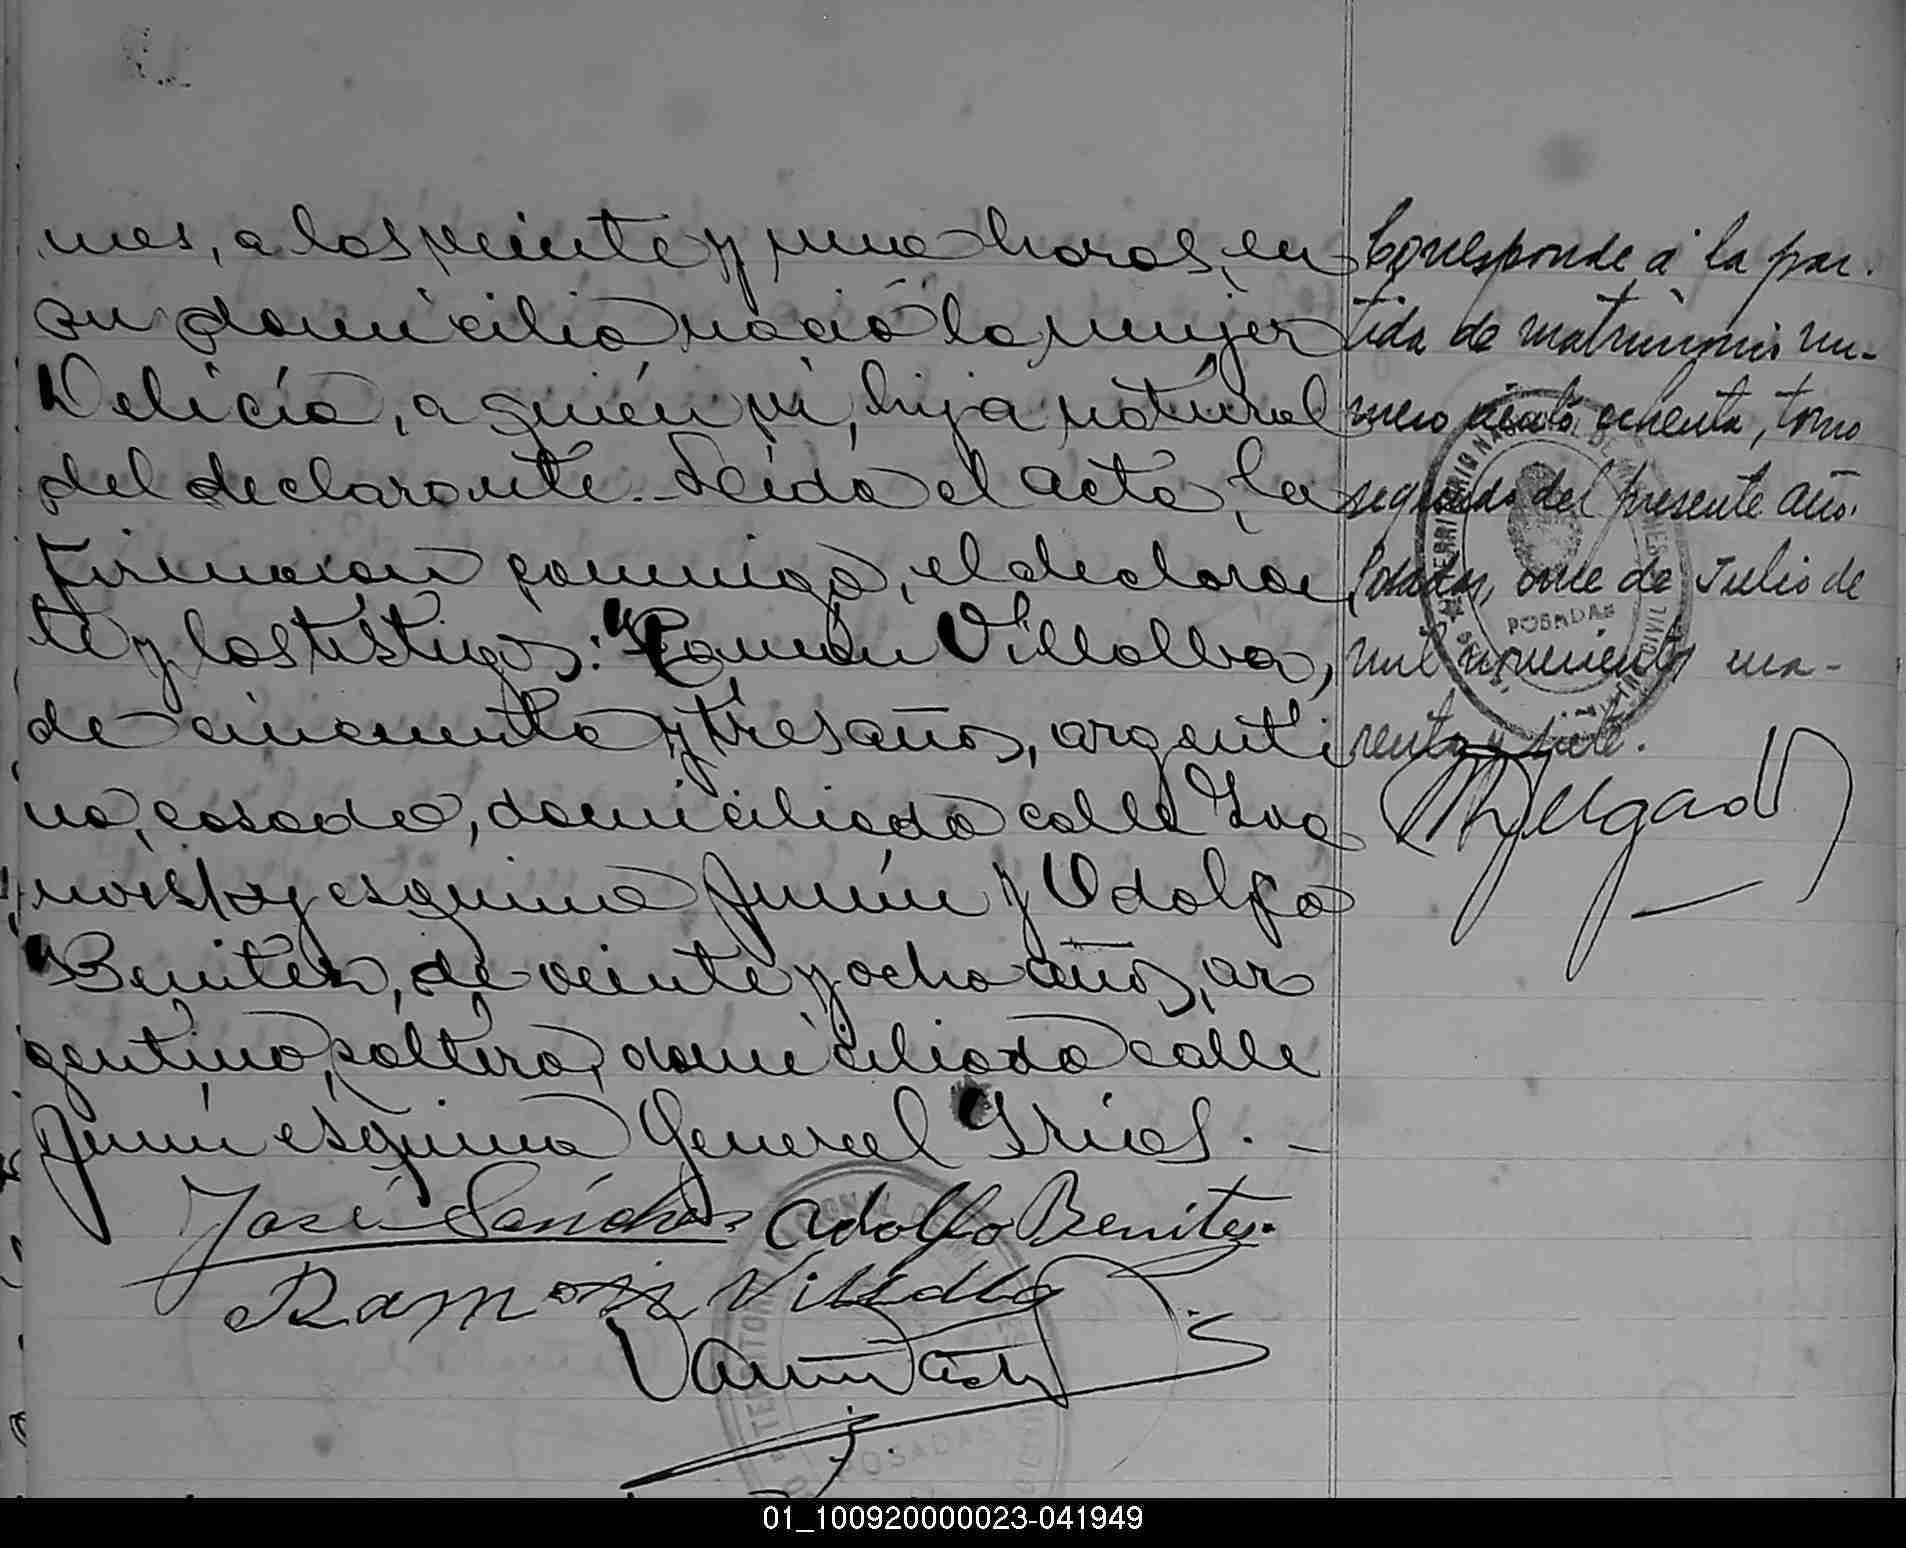 mes, a las veinte y una horas, en
su domicilio nació la mujer
Delicia, a quién vi, hija natural
del declarante. Leída el acta, la
firmaron conmigo, el declaran
te y los testigos: Ramón Villalba,
de cincuenta y tres años, argenti
no, casado, domiciliado calle
esquina Junín y Adolfo
Benitez, de veinte y ocho años, ar
gentino, soltero, domiciliado calle
Junín esquina General Frías. -
José Sánchez Adolfo Benitez
Ramon Villalba
Corresponde á la par.
tida de matrimonio nu-
mero ciento ochenta, tomo
segundo del presente año.
Posadas, once de Julio de
mil novecientos cua-
renta y siete.
MDelgado
POSADAS
POSADAS
01_100920000023-041949